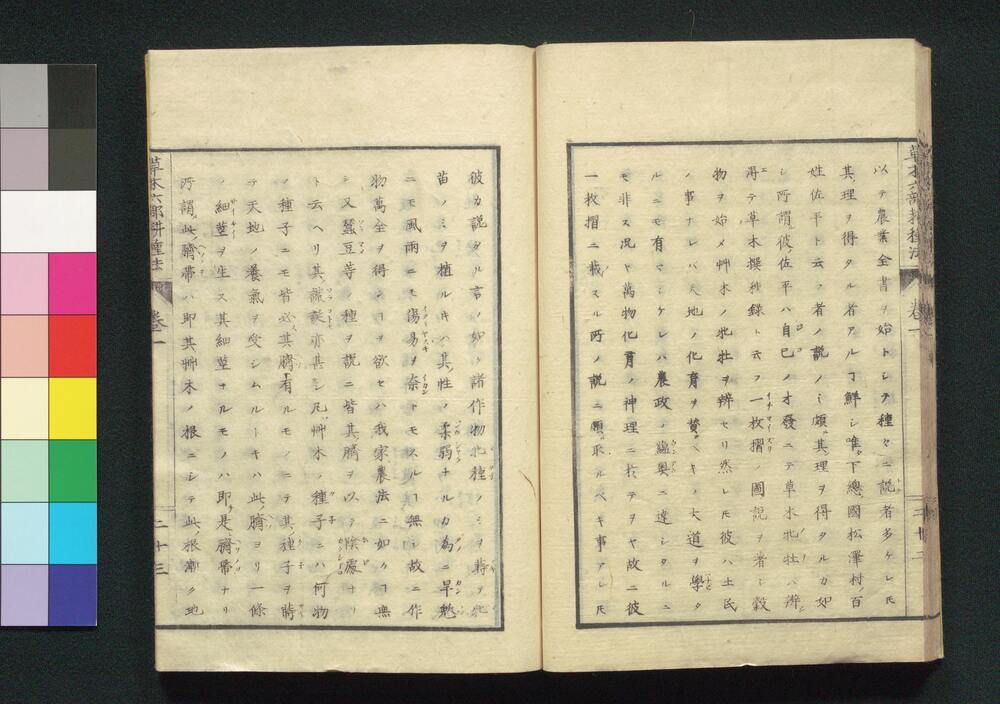 草木六部耕種法
卷一
以テ農業全書ヲ始トシテ種々ニ説者多ケレ𪜈
其理ヲ得タル者アルヿ鮮シ唯下總國松澤村ノ百
姓佐平ト云フ者ノ説ノミ頗其理ヲ得タルカ如
シ所謂彼佐平ハ自己ノオ發ニテ草木牝牡ノ辨
ヲ得テ草木撰種録ト云フ一枚摺ノ圖説ヲ著シ穀
物ヲ始メ艸木ノ牝牡ヲ辨セリ然レ𪜈彼ハ土民
ノ事ナレバ天地ノ化育ヲ賛ベキノ大道ヲ學タ
ルニモ有ラシケレハ農政ノ蘊奥ニ達シタルニ
モ非ス况ヤ萬物化育ノ神理ニ於テヲヤ故ニ彼
一枚摺ニ載スル所ノ説ニ願取ルベキ事アレ𪜈
彼カ説タル言ノ如ク諸作物牝種ノミヲ蒔ヲ牝
苗ノミヲ植ルキハ其性ノ柔弱ナルカ為ニ旱愁
ニモ風雨ニモ傷易ヲ奈トモスルヿ無シ故ニ作
物萬全ヲ得ンヿヲ欲セハ我家農法ニ如クヿ無
シ又蠶豆等ノ種ヲ説ニ皆其臍ヲ以テ陰處ナリ
ト云ヘリ其誣談亦甚シ凡艸木ノ種子ニハ何物
ノ種子ニモ皆必其臍有ルモノニテ其種子ヲ蒔
テ天地ノ養氣ヲ受シムルトキハ此臍ヨリ一條
ノ細莖ヲ生ス其細莖ナルモノハ即是臍帶ナリ
所謂此臍帶ハ即其艸木ノ根ニシテ此根漸ク地
草木六部耕種法
卷一
二十三